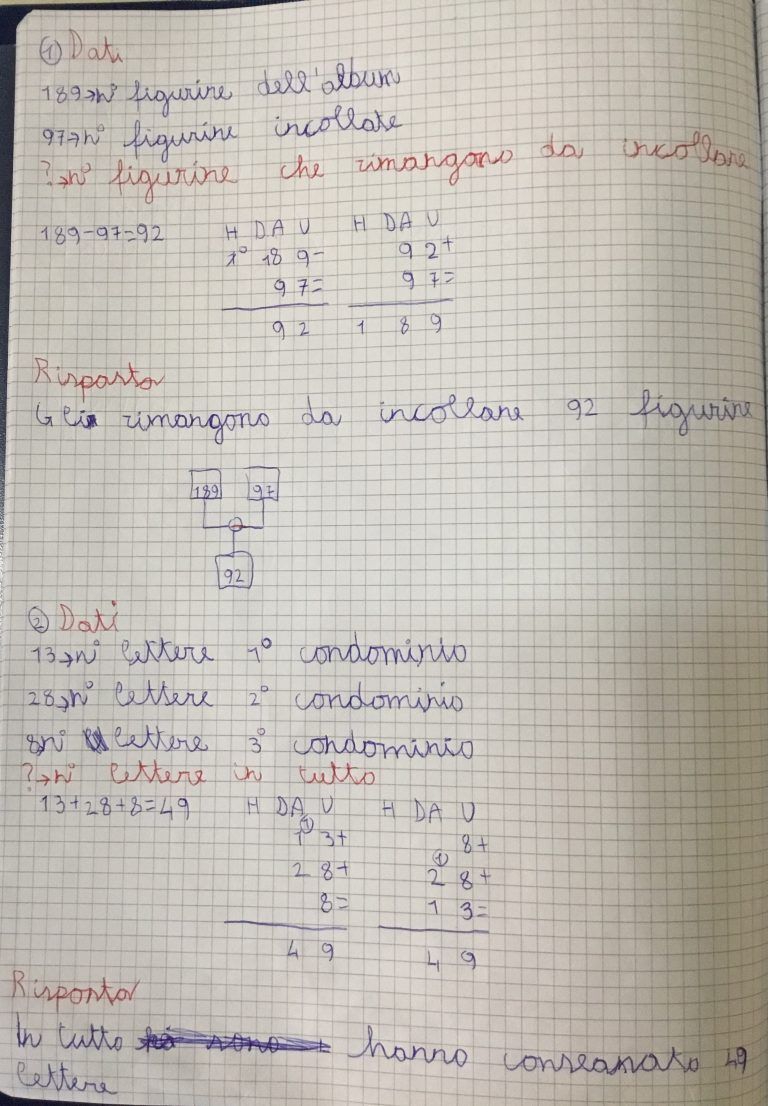 ① Dati
189→n° figurine dell'album
97→n° figurine incollate
?→n° figurine che rimangono da incollare
189-97=92 H DA U H DA U
1⁰ 18 9- 9 2+
9 7= 9 7=
9 2 1 8 9
Risposta
Gli rimangono da incollare 92 figurine
189 97
-
92
② Dati
13→n° lettere 1° condominio
28→n° lettere 2° condominio
8n° lettere 3° condominio
?→n° lettere in tutto
13+28+8=49 H DA U H DA U
1① 3+ 8+
2 8+ ① 2 8+
8= 1 3=
4 9 4 9
Risposta
In tutto hanno conseganato 49
lettere